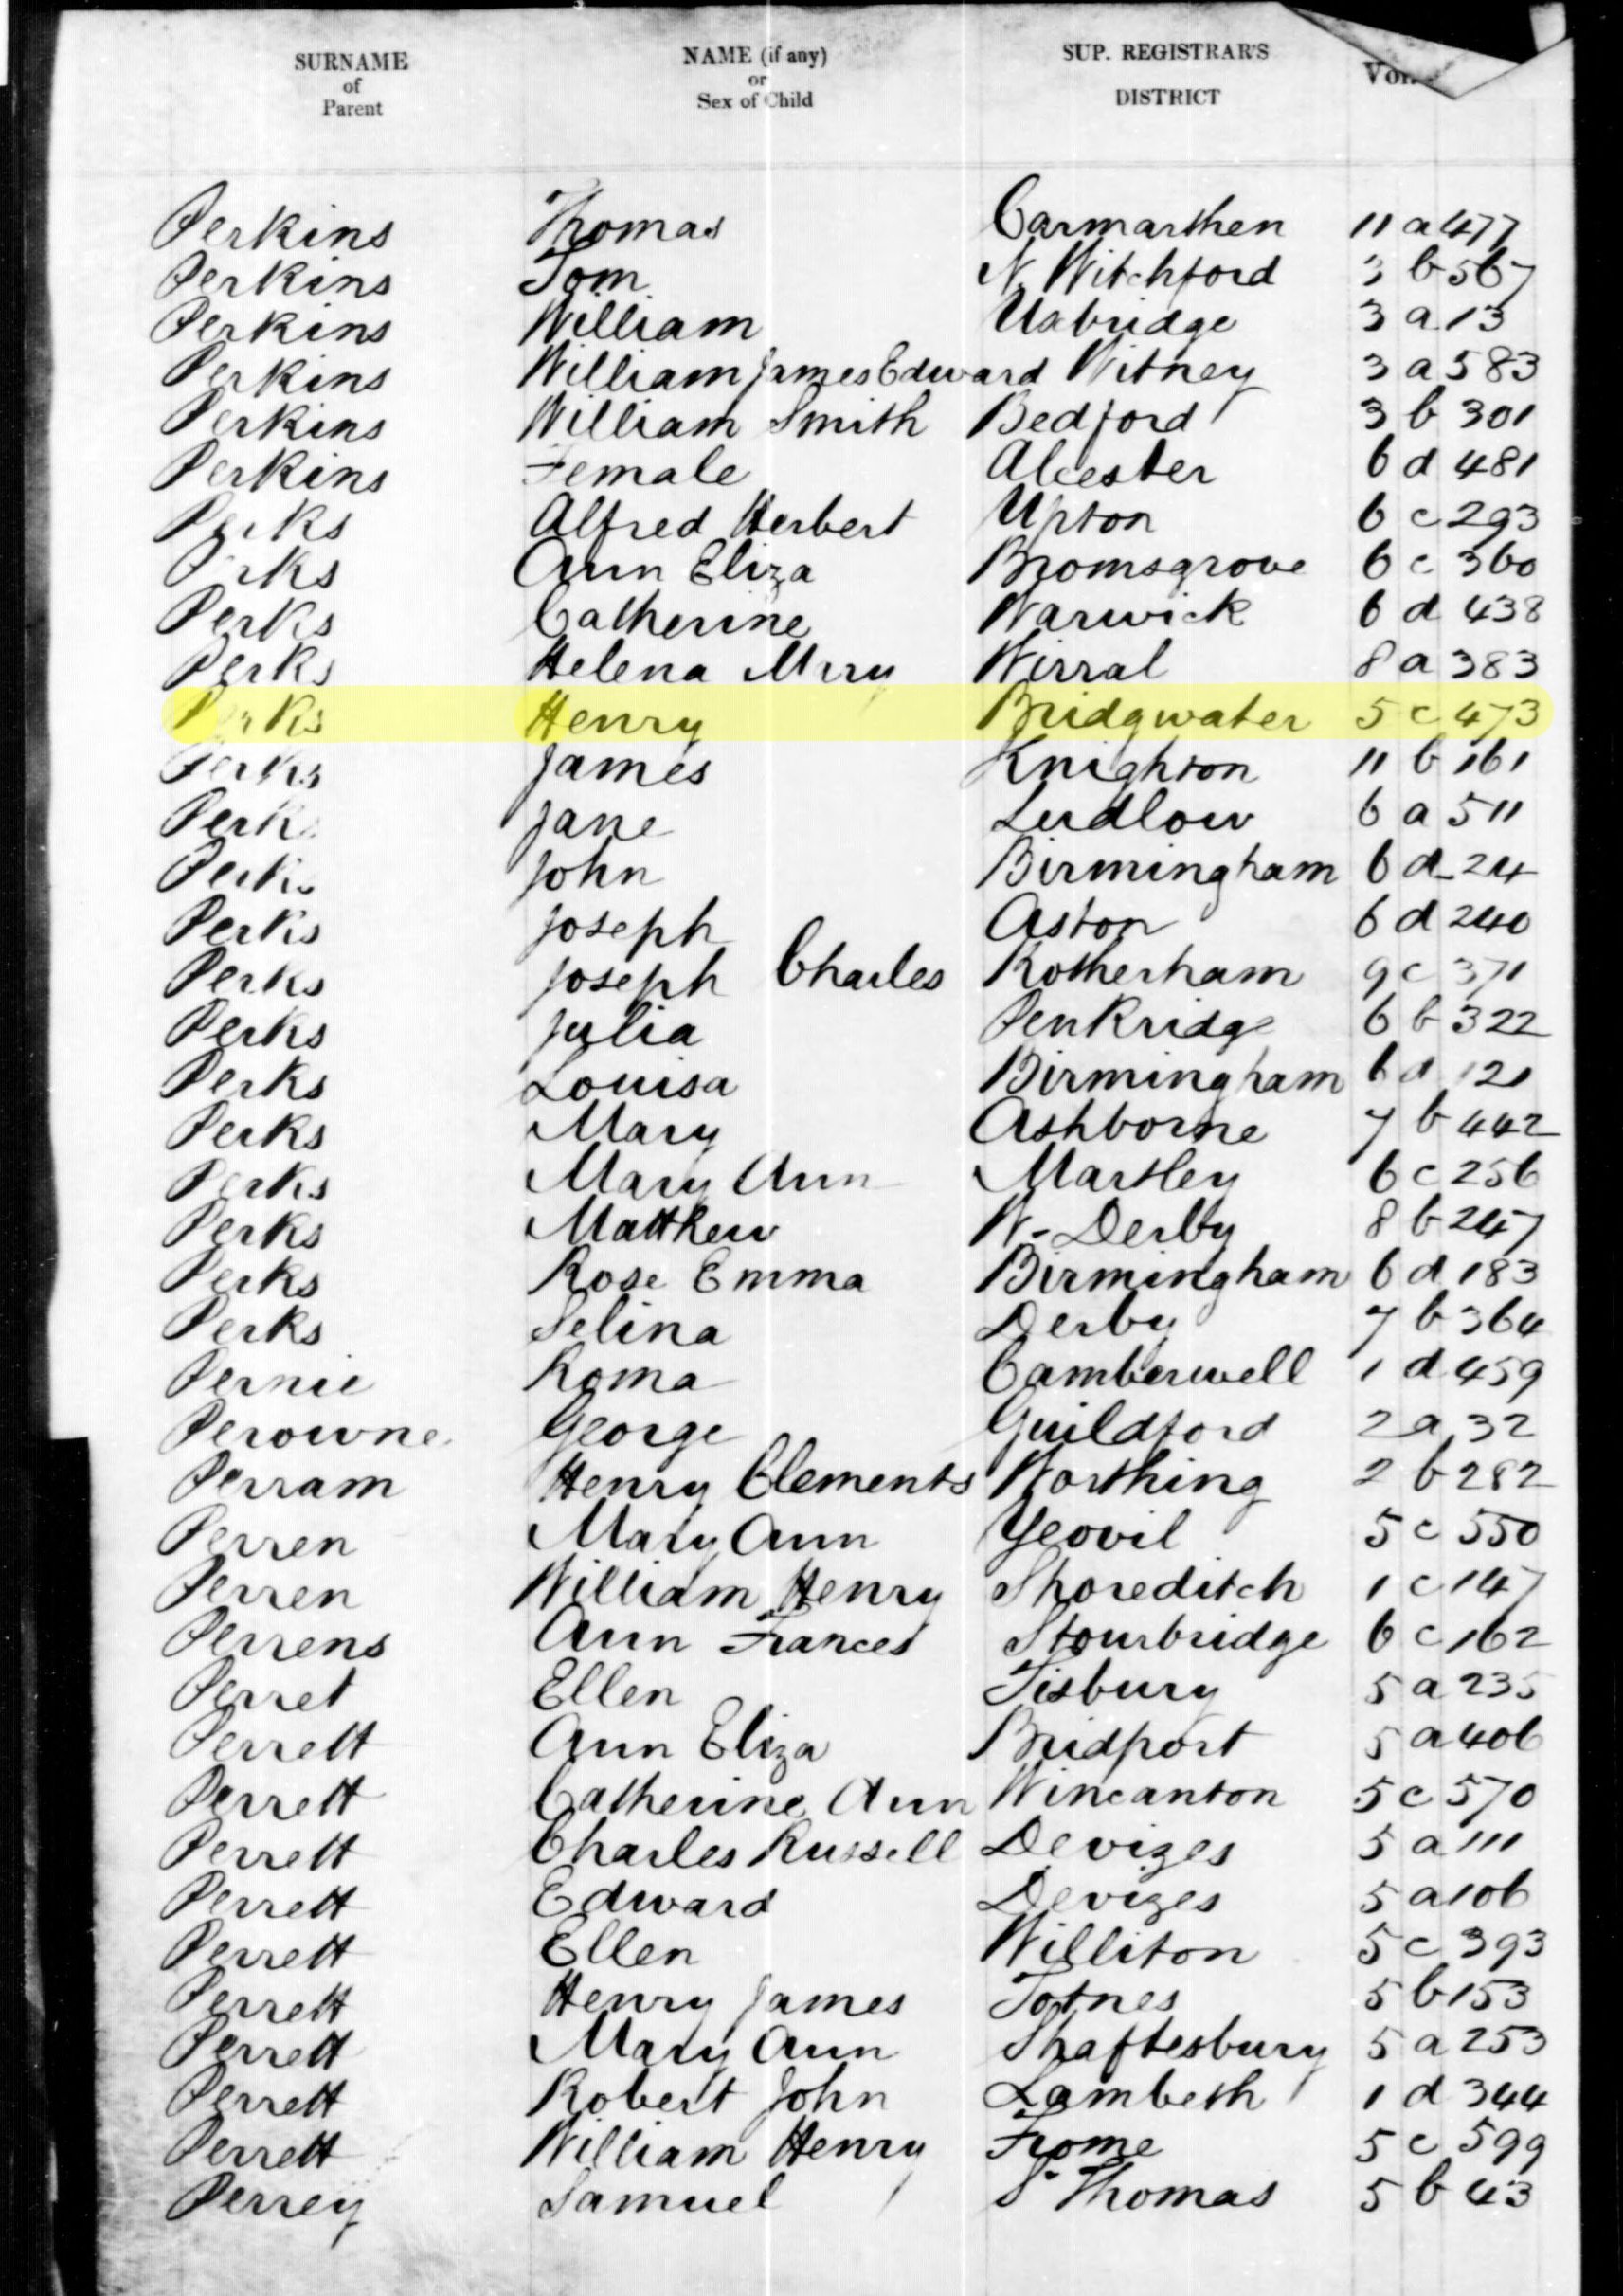 SURNAME of Parent NAME (if any) or Sex of Child SUP. REGISTRAR'S DISTRICT Vol.
Perkins Thomas Carmarthen 11 a 477
Perkins Tom N. Witchford 3 b 567
Perkins William Uxbridge 3 a 13
Perkins William James Edward Witney 3 a 583
Perkins William Smith Bedford 3 b 301
Perkins Female Alcester 6 d 481
Perks Alfred Herbert Upton 6 c 293
Perks Ann Eliza Bromsgrove 6 c 360
Perks Catherine Warwick 6 d 438
Perks Helena Mary Wirral 8 a 383
Perks Henry Bridgwater 5 c 473
Perks James Knighton 11 b 161
Perks Jane Ludlow 6 a 511
Perks John Birmingham 6 d 24
Perks Joseph Aston 6 d 240
Perks Joseph Charles Rotherham 9 c 371
Perks Julia Penkridge 6 b 322
Perks Louisa Birmingham 6 d 121
Perks Mary Ashborne 7 b 442
Perks Mary Ann Martley 6 c 256
Perks Matthew W. Derby 8 b 247
Perks Rose Emma Birmingham 6 d 183
Perks Selina Derby 7 b 364
Pernie Roma Camberwell 1 d 459
Perowne George Guildford 2 a 32
Perram Henry Clements Worthing 2 b 282
Perren Mary Ann Yeovil 5 c 550
Perren William Henry Shoreditch 1 c 147
Perrens Ann Frances Stourbridge 6 c 162
Perret Ellen Tisbury 5 a 235
Perrett Ann Eliza Bridport 5 a 406
Perrett Catherine Ann Wincanton 5 c 570
Perrett Charles Russell Devizes 5 a 111
Perrett Edward Devizes 5 a 106
Perrett Ellen Williton 5 c 393
Perrett Henry James Totnes 5 b 153
Perrett Mary Ann Shaftesbury 5 a 253
Perrett Robert John Lambeth 1 d 344
Perrett William Henry Frome 5 c 599
Perrey Samuel S. Thomas 5 b 43